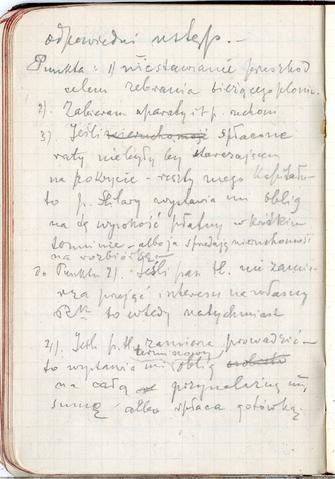 odpowiedni ustęp. —
Punkta: 1) niestawianie przeszkód
celem zebrania bieżącego plonu.
2). Zabieram aparaty i t p. ruchom
3). Jeśli nieruchomość spłacone
raty nie byłyby starczającem
na pokrycie – reszty mego Kapitału
to p. wystawia mi oblig
na tę wysokość płatny w krótkim
terminie – albo ja sprzedaję nieruchomość
na rozbiórkę –
Do Punktu 2). Jeśli pan Tł. nie zamie-
rza przejąć interesu na własny
R-k to wtedy natychmiast
2). Jeśli p. Tł. zamierza prowadzić –
terminowy
to wystawia mi oblig
na całą przynależną mi
sumę albo spłaca gotówką.